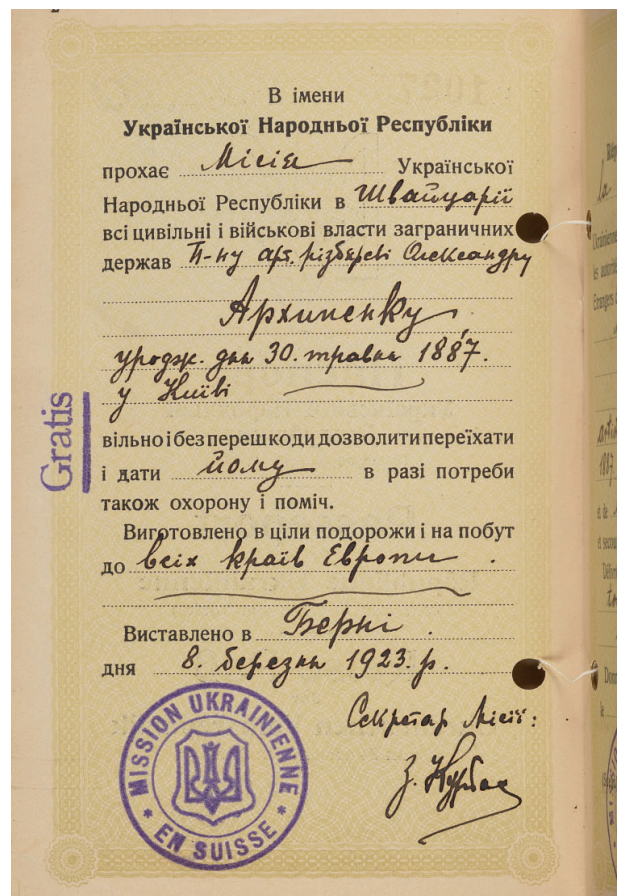 В імени
Української Народньої Республіки
прохає Місія Української
Народньої Республіки в Швайцарії
всі цивільні і військові власти заграничних
держав П-ну арт. різбареві Олександру
Архипенку
уродж. дня 30. травня 1887.
у Київі
Gratis
вільно і без перешкоди дозволити переїхати
і дати йому в разі потреби
також охорону і поміч.
Виготовлено в ціли подорожи і на побут
до всіх країв Европи.
Виставлено в Берні.
дня 8. березня 1923. р.
Секретар Місії:
MISSION UKRAINIENNE
* EN SUISSE *